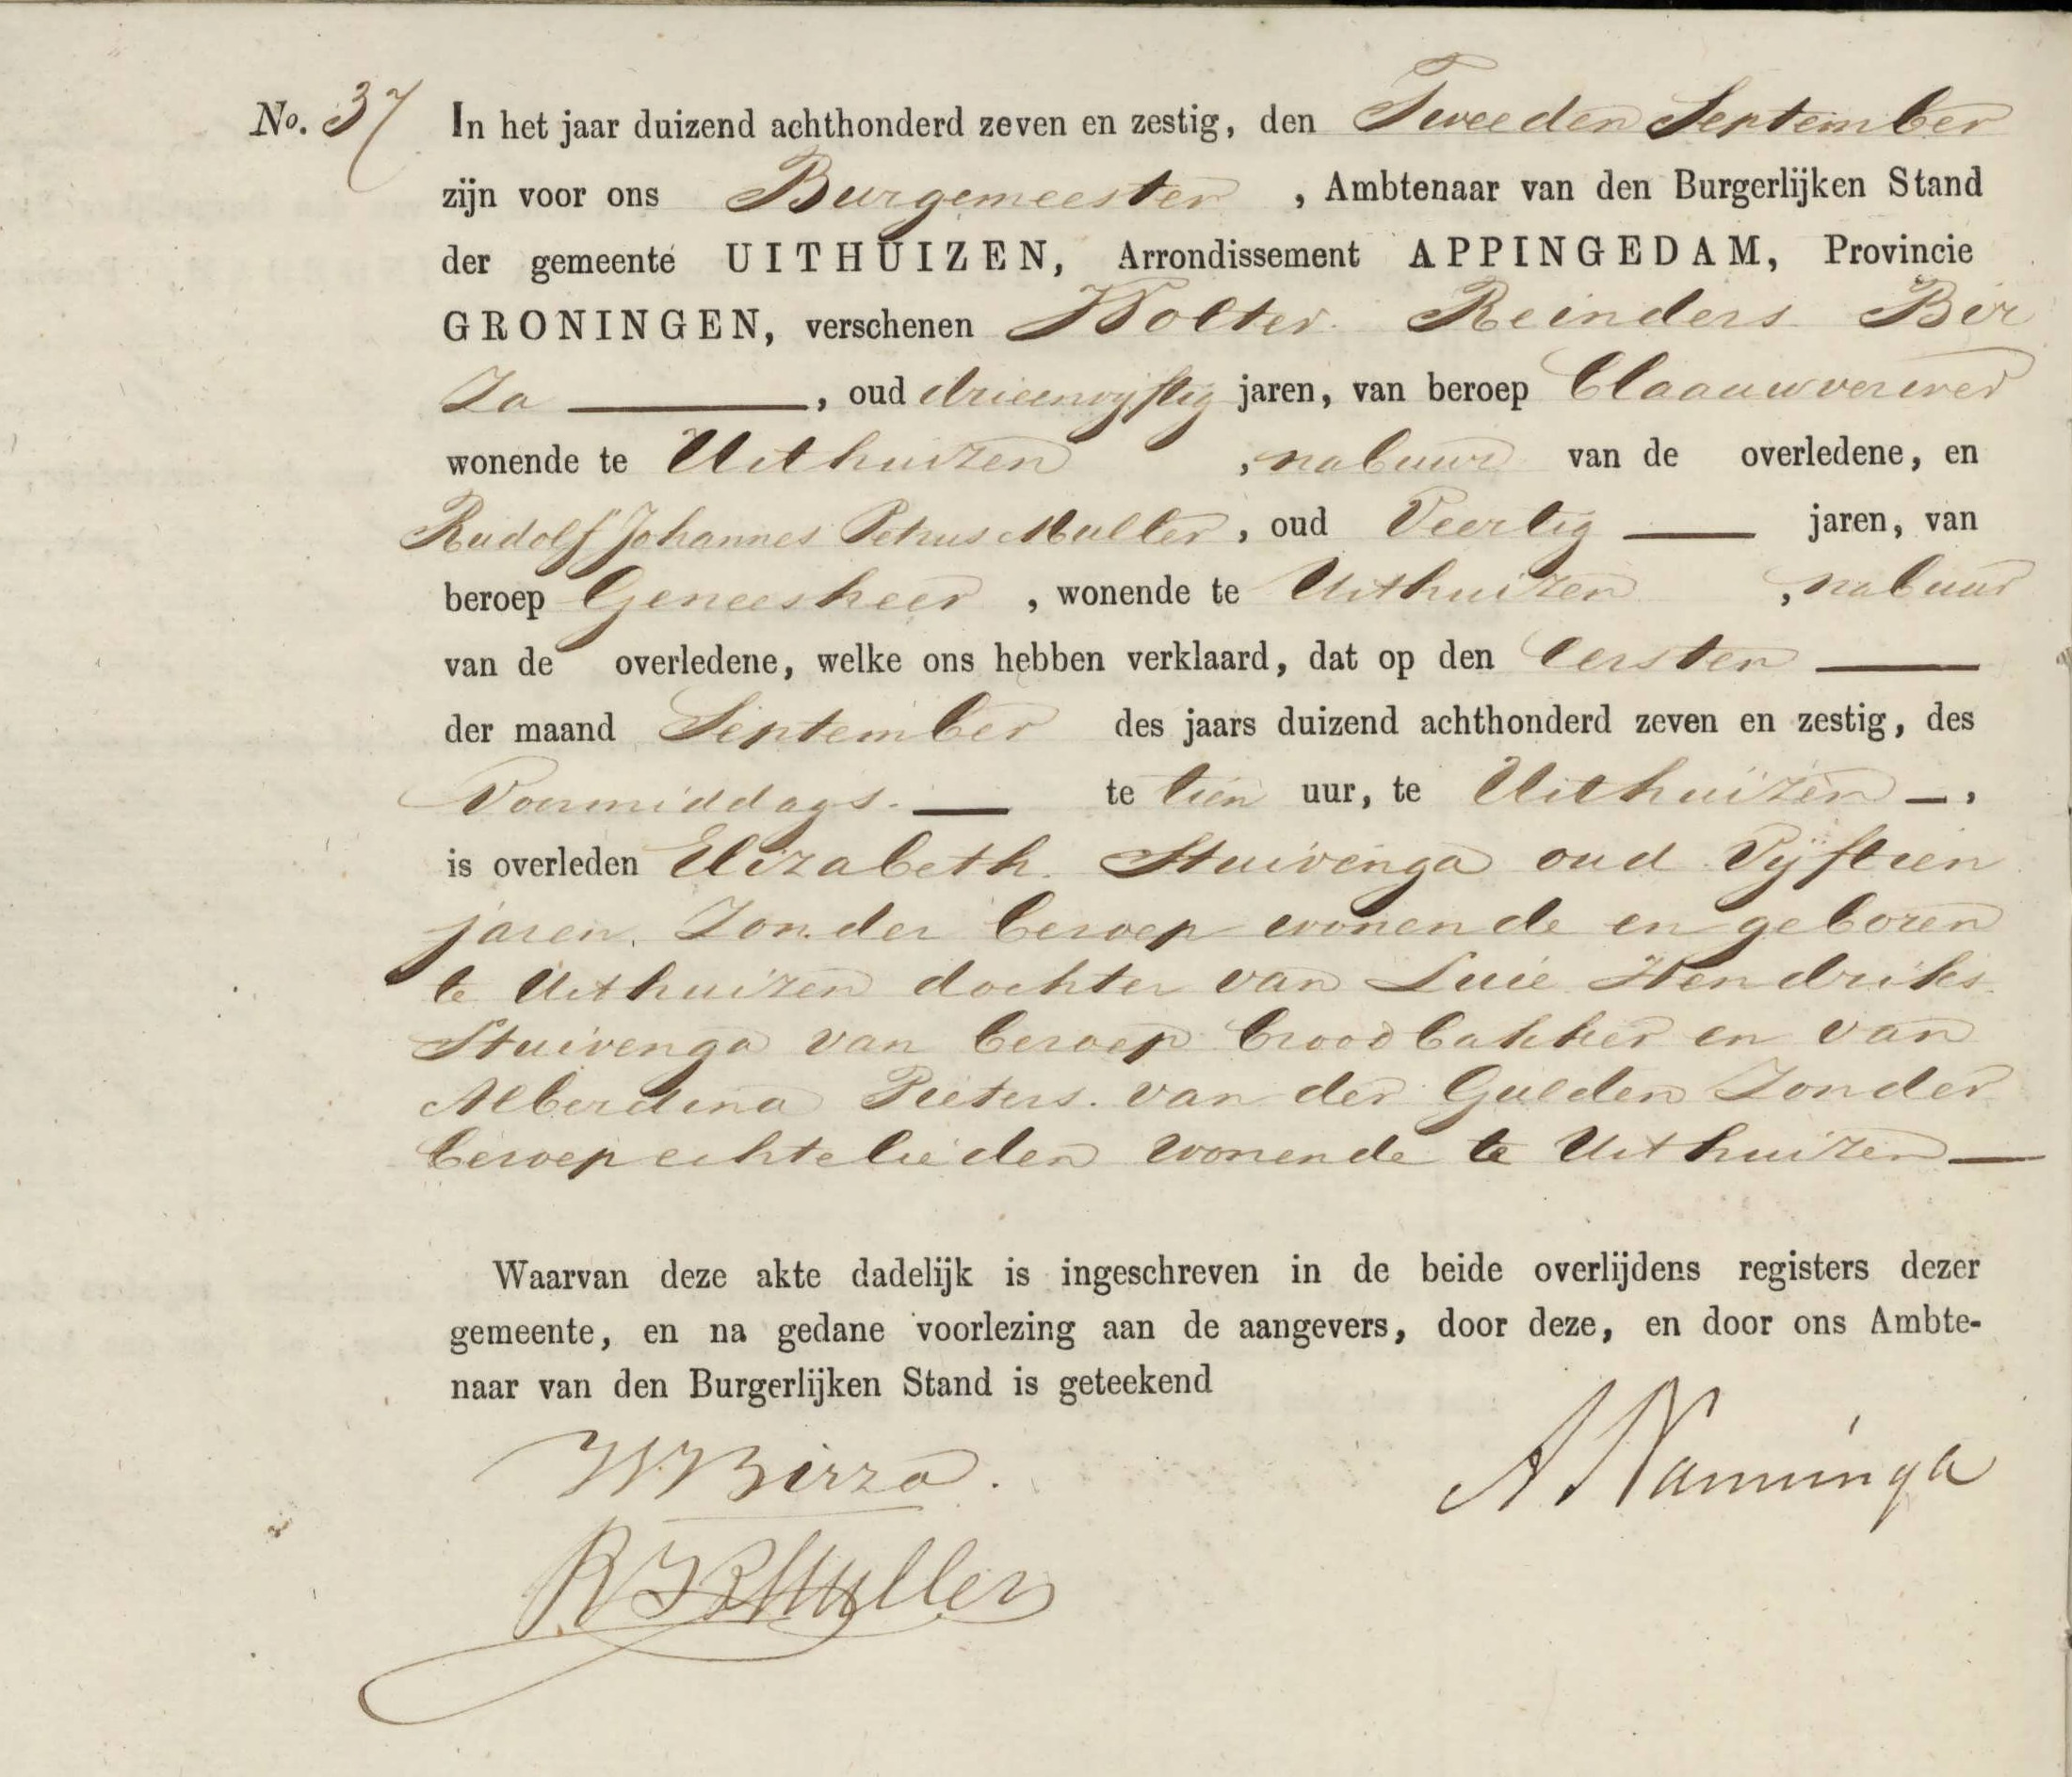 No. 37 In het jaar duizend achthonderd zeven en zestig, den Tweeden September
zijn voor ons Burgemeester , Ambtenaar van den Burgerlijken Stand
der gemeente UITHUIZEN, Arrondissement APPINGEDAM, Provincie
GRONINGEN, verschenen Wolter Reinders Bir
Za ——, oud drieenvijftig jaren, van beroep blaauwverwer
wonende te Uithuizen , nabuur van de overledene, en
Rudolf Johannes Petrus Muller, oud Veertig —— jaren, van
beroep Geneesheer , wonende te Uithuizen , nabuur
van de overledene, welke ons hebben verklaard, dat op den eersten ——
der maand September des jaars duizend achthonderd zeven en zestig, des
Voormiddags. —— te tien uur, te Uithuizen —,
is overleden Elizabeth. Stuivenga oud Vijftien
jaren, Zonder beroep wonende en geboren
te Uithuizen dochter van Luie Hendriks
Stuivenga van beroep broodbakker en van
Alberdina Pieters. van der Gulden Zonder
beroep echtelieden wonende te Uithuizen —
Waarvan deze akte dadelijk is ingeschreven in de beide overlijdens registers dezer
gemeente, en na gedane voorlezing aan de aangevers, door deze, en door ons Ambte-
naar van den Burgerlijken Stand is geteekend
WRBirza.
A Nanninga
RJPMuller